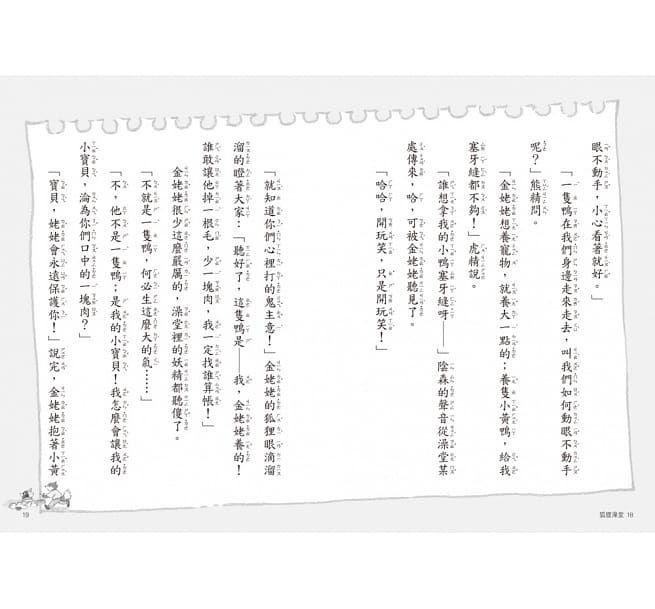 眼不動手，小心看著就好。」
「一隻鴨在我們身邊走來走去，叫我們如何動眼不動手
呢？」熊精問。
「金姥姥想養寵物，就養大一點的；養隻小黃鴨，給我
塞牙縫都不夠！」虎精說。
「誰想拿我的小鴨塞牙縫呀——」陰森的聲音從澡堂某
處傳來，哈，可被金姥姥聽見了。
「哈哈，開玩笑，只是開玩笑！」
狐狸澡堂 18
「就知道你們心裡打的鬼主意！」金姥姥的狐狸眼滴溜
溜的瞪著大家：「聽好了，這隻鴨是——我，金姥姥養的！
誰敢讓他掉一根毛，少一塊肉，我一定找誰算帳！」
金姥姥很少這麼嚴厲的，澡堂裡的妖精都聽傻了。
「不就是一隻鴨，何必生這麼大的氣……」
「不，他不是一隻鴨；是我的小寶貝！我怎麼會讓我的
小寶貝，淪為你們口中的一塊肉？」
「寶貝，姥姥會永遠保護你！」說完，金姥姥抱著小黃
19